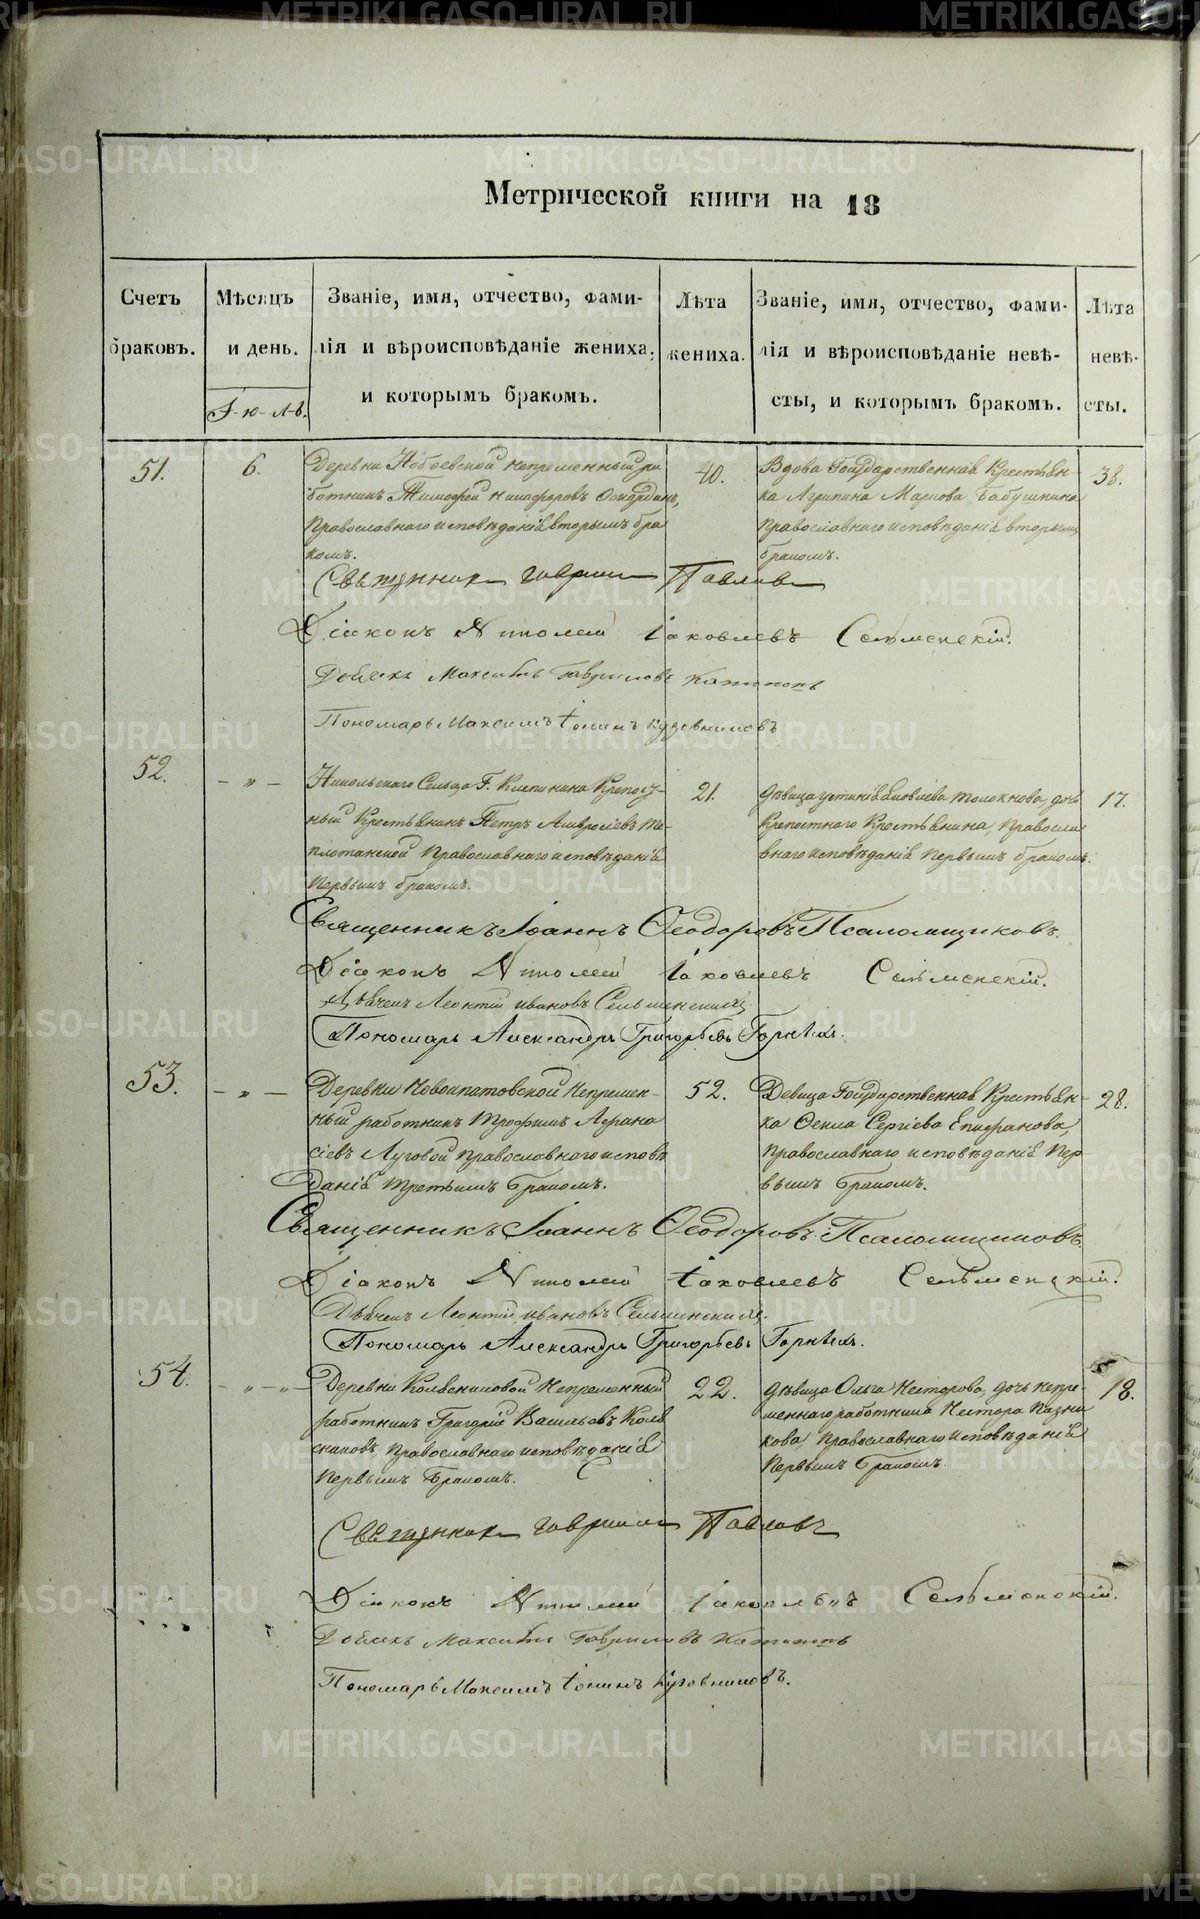 METRIKI.GASO-URAL.RU
Метрической книги на 18
Счетъ браковъ.
Мѣсяцъ и день.
І-ю-л-ь.
Званіе, имя, отчество, фами-
лія и вѣроисповѣданіе жениха,
и которымъ бракомъ.
Лѣта
жениха.
Званіе, имя, отчество, фами-
лія и вѣроисповѣданіе невѣ-
сты, и которымъ бракомъ.
Лѣта
невѣ-
сты.
51.
6.
Деревни непременный ра
ботникъ Тимофей Никифоровъ
Православнаго исповѣданія вторымъ бра
комъ.
40.
Вдова Государственная Крестьян-
ка Агрипина Маркова Бабушкина
Православнаго исповѣданія вторымъ
бракомъ.
38.
Священникъ Гавриилъ Павловъ
Діаконъ Николай Іаковлевъ Селѣменскій.
Максимъ Гавриловъ
Пономарь Максимъ Іонинъ Кузовниковъ
52.
- " -
Никольскаго Сельца Г. Клепинина Крепост-
ный Крестьянинъ Петръ Амвросіевъ
Православнаго исповѣданія
Первымъ бракомъ.
21.
Дѣвица Устинія Яковлева Толокнова, дочь
Крепостнаго Крестьянина, Правосла
внаго исповѣданія Первымъ бракомъ.
17.
Священникъ Іоаннъ Ѳеодоровъ Псаломщиковъ.
Діаконъ Николай Іаковлевъ Селѣменскій.
Дьячекъ Леонтій Ивановъ Сельменскій.
Пономарь Александръ Григорьевъ Горныхъ.
53.
- " -
Деревни Новоипатовской Непремен-
ный работникъ Трофимъ Афана
сіевъ Луговой Православнаго исповѣ
данія Третьимъ Бракомъ.
52.
Девица Государственная Крестьян-
ка Ѳекла Сергіева Епифанова,
Православнаго исповѣданія Пер
вымъ Бракомъ.
28.
Священникъ Іоаннъ Ѳеодоровъ Псаломщиковъ.
Діаконъ Николай Іаковлевъ Селѣменскій.
Дьячекъ Леонтій Ивановъ Сельменскій.
Пономарь Александръ Григорьевъ Горныхъ.
54.
- " - " -
Деревни Колясниковой Непременный
работникъ Григорій Васильевъ Коля
сниковъ Православнаго исповѣданія
Первымъ Бракомъ.
22.
Дѣвица Ольга Несторова, дочь непре-
меннаго работника Нестора
Православнаго исповѣданія
Первымъ Бракомъ.
18.
Священникъ Гавриилъ Павловъ
Діаконъ Николай Іаковлевъ Селѣменскій.
Максимъ Гавриловъ
Пономарь Максимъ Іонинъ Кузовниковъ.